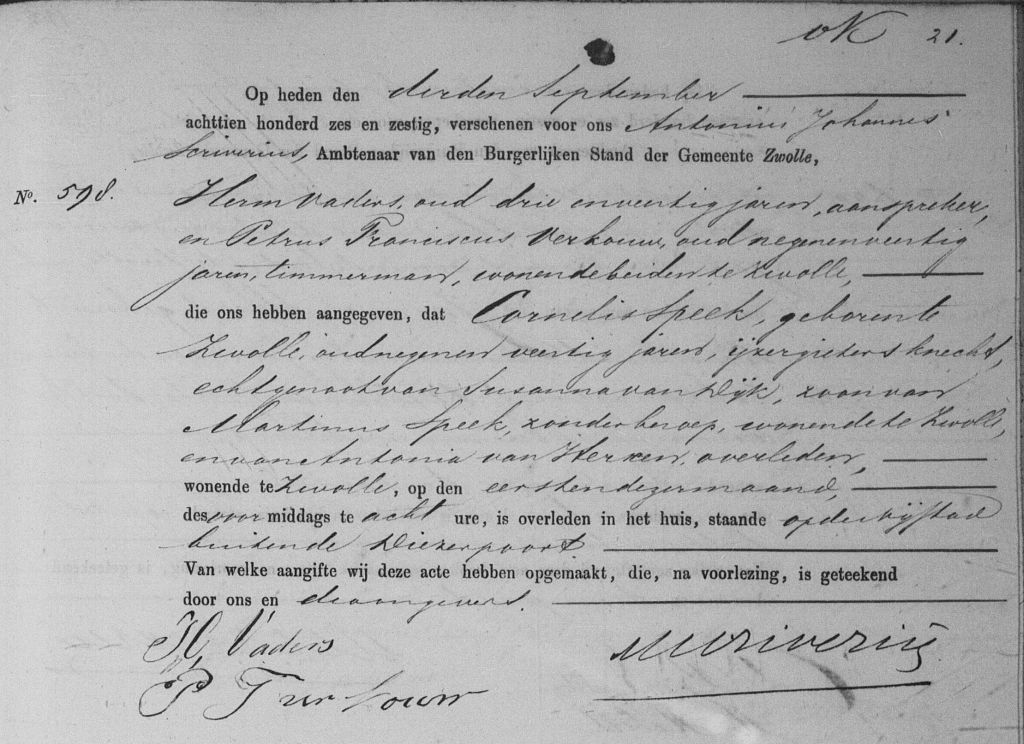 vK 21.
Op heden den derden September
achttien honderd zes en zestig, verschenen voor ons Antonius Johannes
Scriverius, Ambtenaar van den Burgerlijken Stand der Gemeente Zwolle,
No. 598. Herm Vaders, oud drie en veertig jaren, aanspreker,
en Petrus Franciscus Verkouw, oud negen en veertig
jaren, timmerman, wonende beiden te Zwolle,
die ons hebben aangegeven, dat Cornelis Speek, geboren te
Zwolle, oud negen en veertig jaren, ijzergieters knecht,
echtgenoot van Susanna van Dijk, zoon van
Martinus Speek, zonder beroep, wonende te Zwolle,
en van Antonia van Herxen, overleden,
wonende te Zwolle, op den eersten dezer maand,
des voor middags te acht ure, is overleden in het huis, staande op de bijstad
buiten de Diezerpoort
Van welke aangifte wij deze acte hebben opgemaakt, die, na voorlezing, is geteekend
door ons en de aangevers.
H, Vaders
Scriverius
P F ver kouw